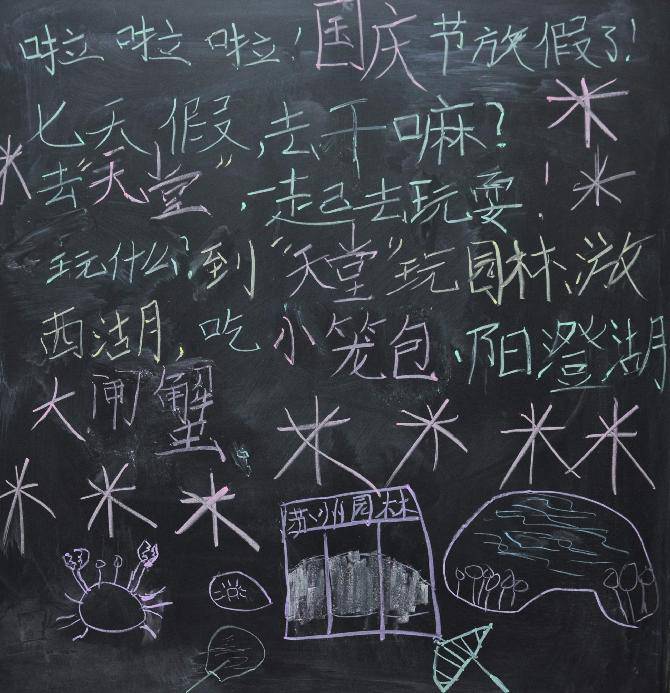 啦啦啦！国庆节放假了！
七天假，去干嘛？
去“天堂”，一起去玩耍！
玩什么？到“天堂”玩园林，游
西湖，吃小笼包，阳澄湖
大闸蟹
苏州园林